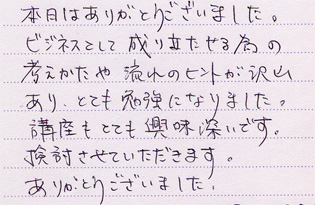 本日はありがとうございました。
ビジネスとして成り立たせる為の
考えかたや流れのヒントが沢山
あり、とても勉強になりました。
講座もとても興味深いです。
検討させていただきます。
ありがとうございました。